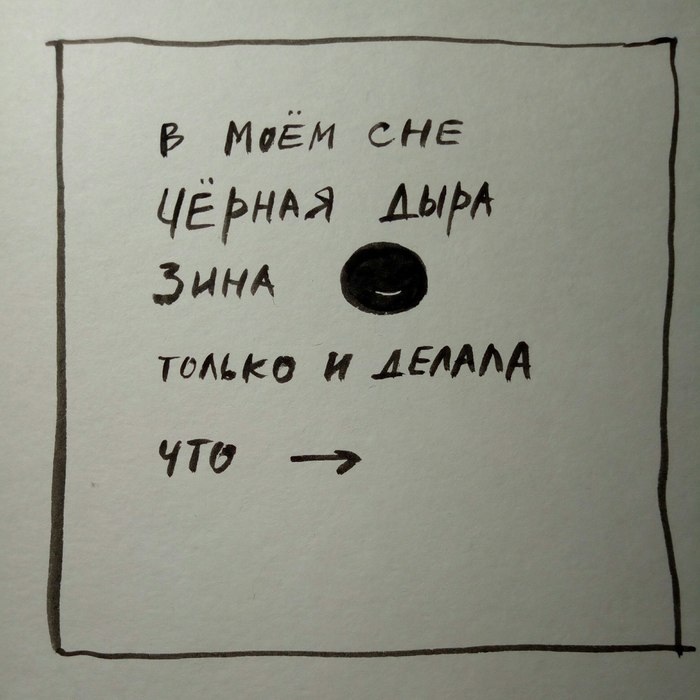 В МОЁМ СНЕ
ЧЁРНАЯ ДЫРА
ЗИНА
ТОЛЬКО И ДЕЛАЛА
ЧТО →